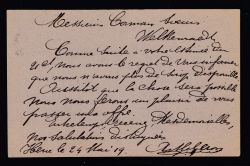 Messieurs Carman Soeurs
Welkenraedt
Comme suite à votre
21 ct nous avons le regret de vous informer
que nous n'avons plus de disponible
Aussitôt que la chose sera possible
nous nous ferons un plaisir de vous
passer une offre.
Mesdemoiselles,
nos salutations distinguées
le 24 Mai 19